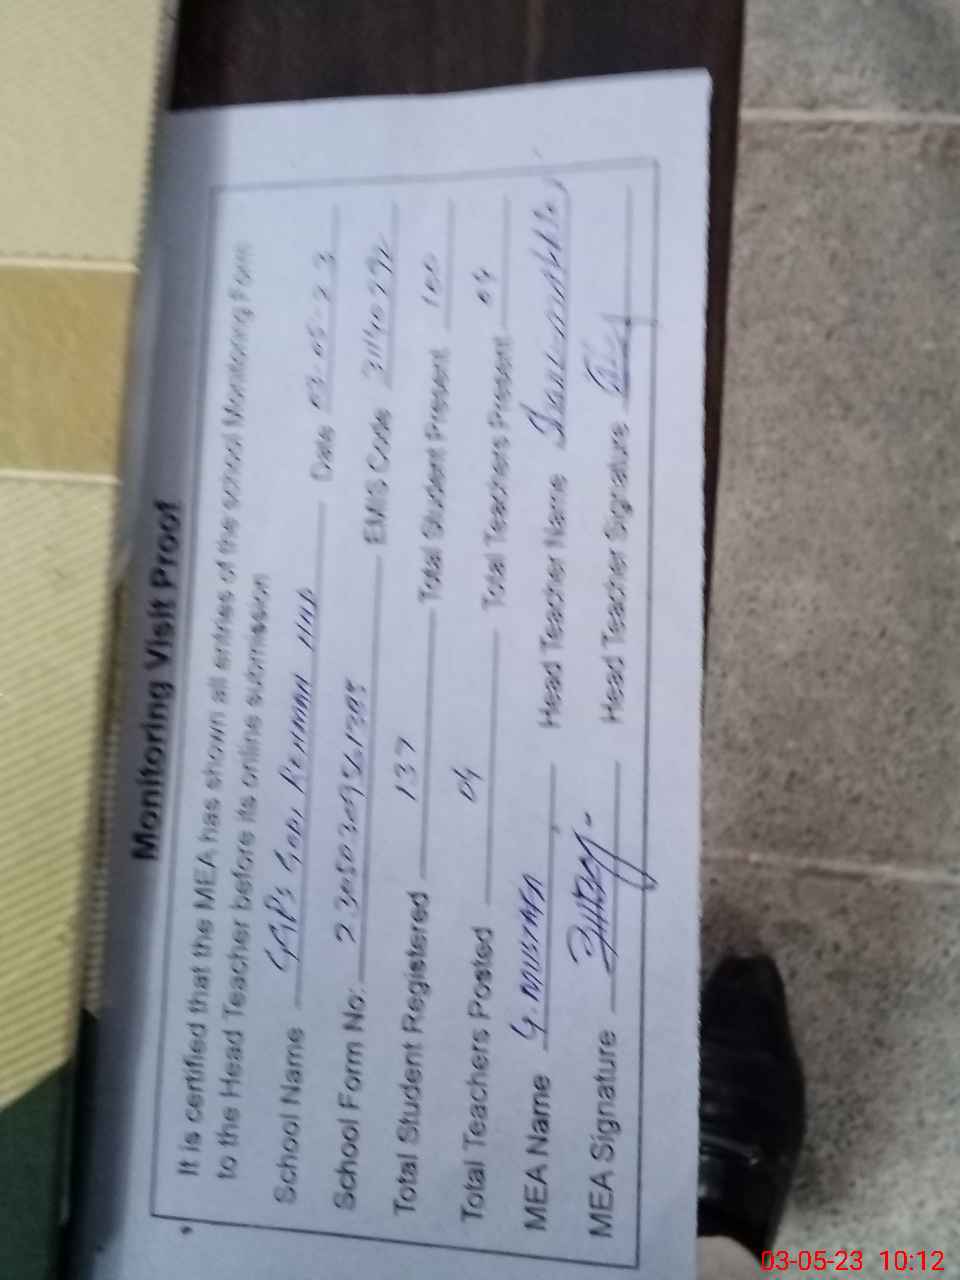 Monitoring Visit Proof
It is certified that the MEA has shown all entries of the school Monitoring Form
to the Head Teacher before its online submission
School Name GPS Date 03-05-23
School Form No: EMIS Code
Total Student Registered 137 Total Student Present 100
Total Teachers Posted 04 Total Teachers Present 04
MEA Name G. MUSTAFA Head Teacher Name
MEA Signature Head Teacher Signature
03-05-23 10:12